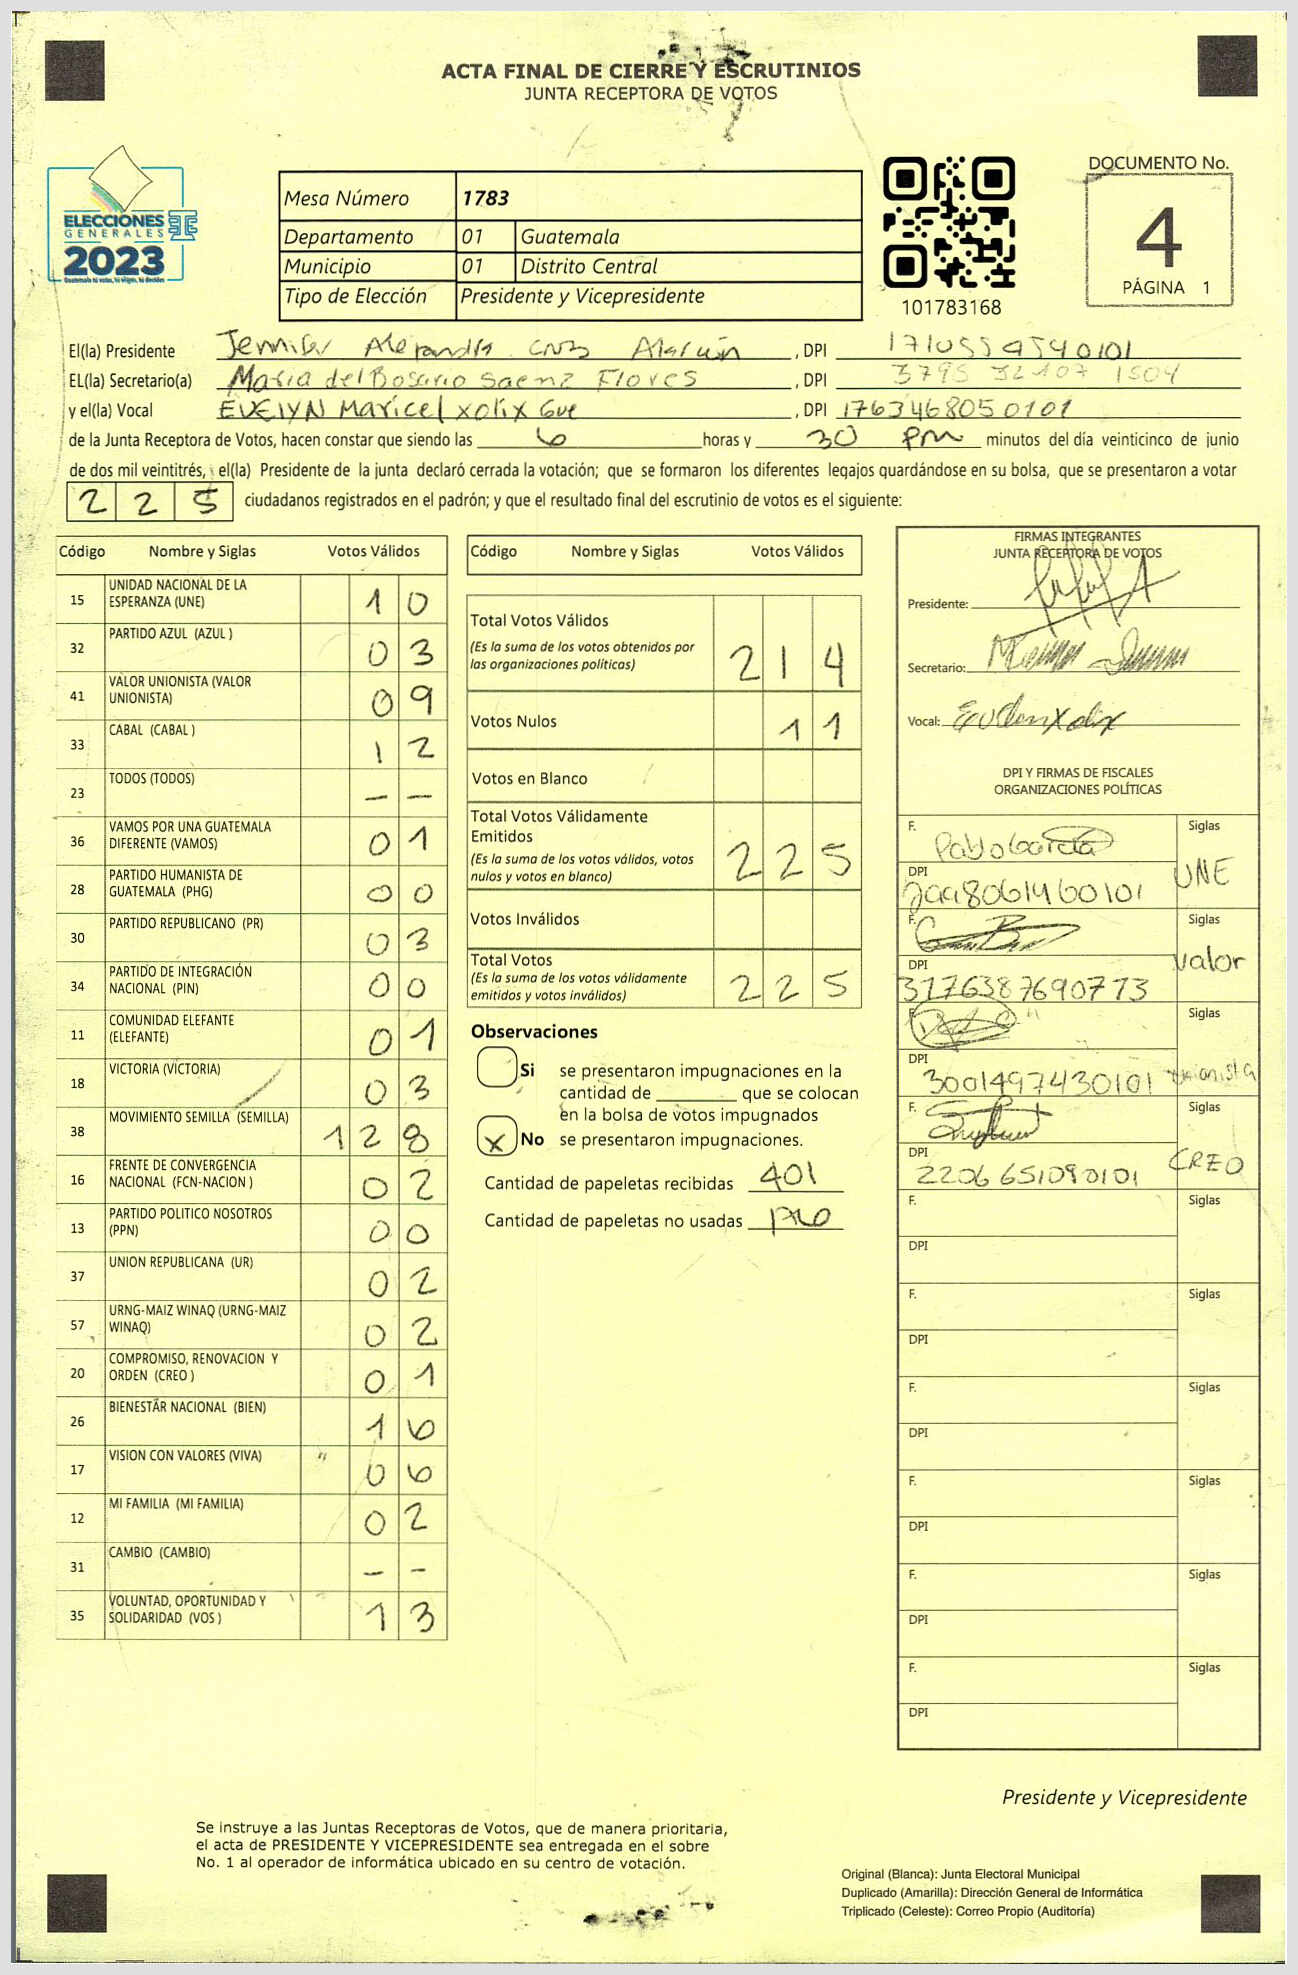 ACTA FINAL DE CIERRE Y ESCRUTINIOS
JUNTA RECEPTORA DE VOTOS
ELECCIONES
GENERALES
2023
Mesa Número 1783
Departamento 01 Guatemala
Municipio 01 Distrito Central
Tipo de Elección Presidente y Vicepresidente
101783168
DOCUMENTO No.
4
PÁGINA 1
El(la) Presidente Jennifer Alejandra Cruz Alarcón, DPI
EL(la) Secretario(a) Maria del Rosario Saenz Flores, DPI
y el(la) Vocal EVElYN Maricel Xolix Gue, DPI 1763468050101
de la Junta Receptora de Votos, hacen constar que siendo las 6 horas y 30 pm minutos del día veinticinco de junio
de dos mil veintitrés, el(la) Presidente de la junta declaró cerrada la votación; que se formaron los diferentes legajos quardándose en su bolsa, que se presentaron a votar
225 ciudadanos registrados en el padrón; y que el resultado final del escrutinio de votos es el siguiente:
Código Nombre y Siglas Votos Válidos
15 UNIDAD NACIONAL DE LA ESPERANZA (UNE) 10
32 PARTIDO AZUL (AZUL ) 03
41 VALOR UNIONISTA (VALOR UNIONISTA) 09
33 CABAL (CABAL ) 12
23 TODOS (TODOS) - -
36 VAMOS POR UNA GUATEMALA DIFERENTE (VAMOS) 01
28 PARTIDO HUMANISTA DE GUATEMALA (PHG) 00
30 PARTIDO REPUBLICANO (PR) 03
34 PARTIDO DE INTEGRACIÓN NACIONAL (PIN) 00
11 COMUNIDAD ELEFANTE (ELEFANTE) 01
18 VICTORIA (VICTORIA) 03
38 MOVIMIENTO SEMILLA (SEMILLA) 128
16 FRENTE DE CONVERGENCIA NACIONAL (FCN-NACION ) 02
13 PARTIDO POLITICO NOSOTROS (PPN) 00
37 UNION REPUBLICANA (UR) 02
57 URNG-MAIZ WINAQ (URNG-MAIZ WINAQ) 02
20 COMPROMISO, RENOVACION Y ORDEN (CREO ) 01
26 BIENESTAR NACIONAL (BIEN) 16
17 VISION CON VALORES (VIVA) 06
12 MI FAMILIA (MI FAMILIA) 02
31 CAMBIO (CAMBIO) - -
35 VOLUNTAD, OPORTUNIDAD Y SOLIDARIDAD (VOS ) 13
Código Nombre y Siglas Votos Válidos
Total Votos Válidos 214
(Es la suma de los votos obtenidos por
las organizaciones políticas)
Votos Nulos 11
Votos en Blanco
Total Votos Válidamente
Emitidos 225
(Es la suma de los votos válidos, votos
nulos y votos en blanco)
Votos Inválidos
Total Votos 225
(Es la suma de los votos válidamente
emitidos y votos inválidos)
Observaciones
Si se presentaron impugnaciones en la
cantidad de ________ que se colocan
en la bolsa de votos impugnados
X No se presentaron impugnaciones.
Cantidad de papeletas recibidas 401
Cantidad de papeletas no usadas
FIRMAS INTEGRANTES
JUNTA RECEPTORA DE VOTOS
Presidente:
Secretario:
Vocal: Evelyn Xolix
DPI Y FIRMAS DE FISCALES
ORGANIZACIONES POLÍTICAS
F. Pablo García Siglas
DPI UNE
F. Siglas
DPI 3176387690773 Valor
F. Siglas
DPI 3001497430101 unionista
F. Siglas
DPI 2206651090101 CREO
F. Siglas
DPI
F. Siglas
DPI
F. Siglas
DPI
F. Siglas
DPI
F. Siglas
DPI
F. Siglas
DPI
Presidente y Vicepresidente
Se instruye a las Juntas Receptoras de Votos, que de manera prioritaria,
el acta de PRESIDENTE Y VICEPRESIDENTE sea entregada en el sobre
No. 1 al operador de informática ubicado en su centro de votación.
Original (Blanca): Junta Electoral Municipal
Duplicado (Amarilla): Dirección General de Informática
Triplicado (Celeste): Correo Propio (Auditoría)